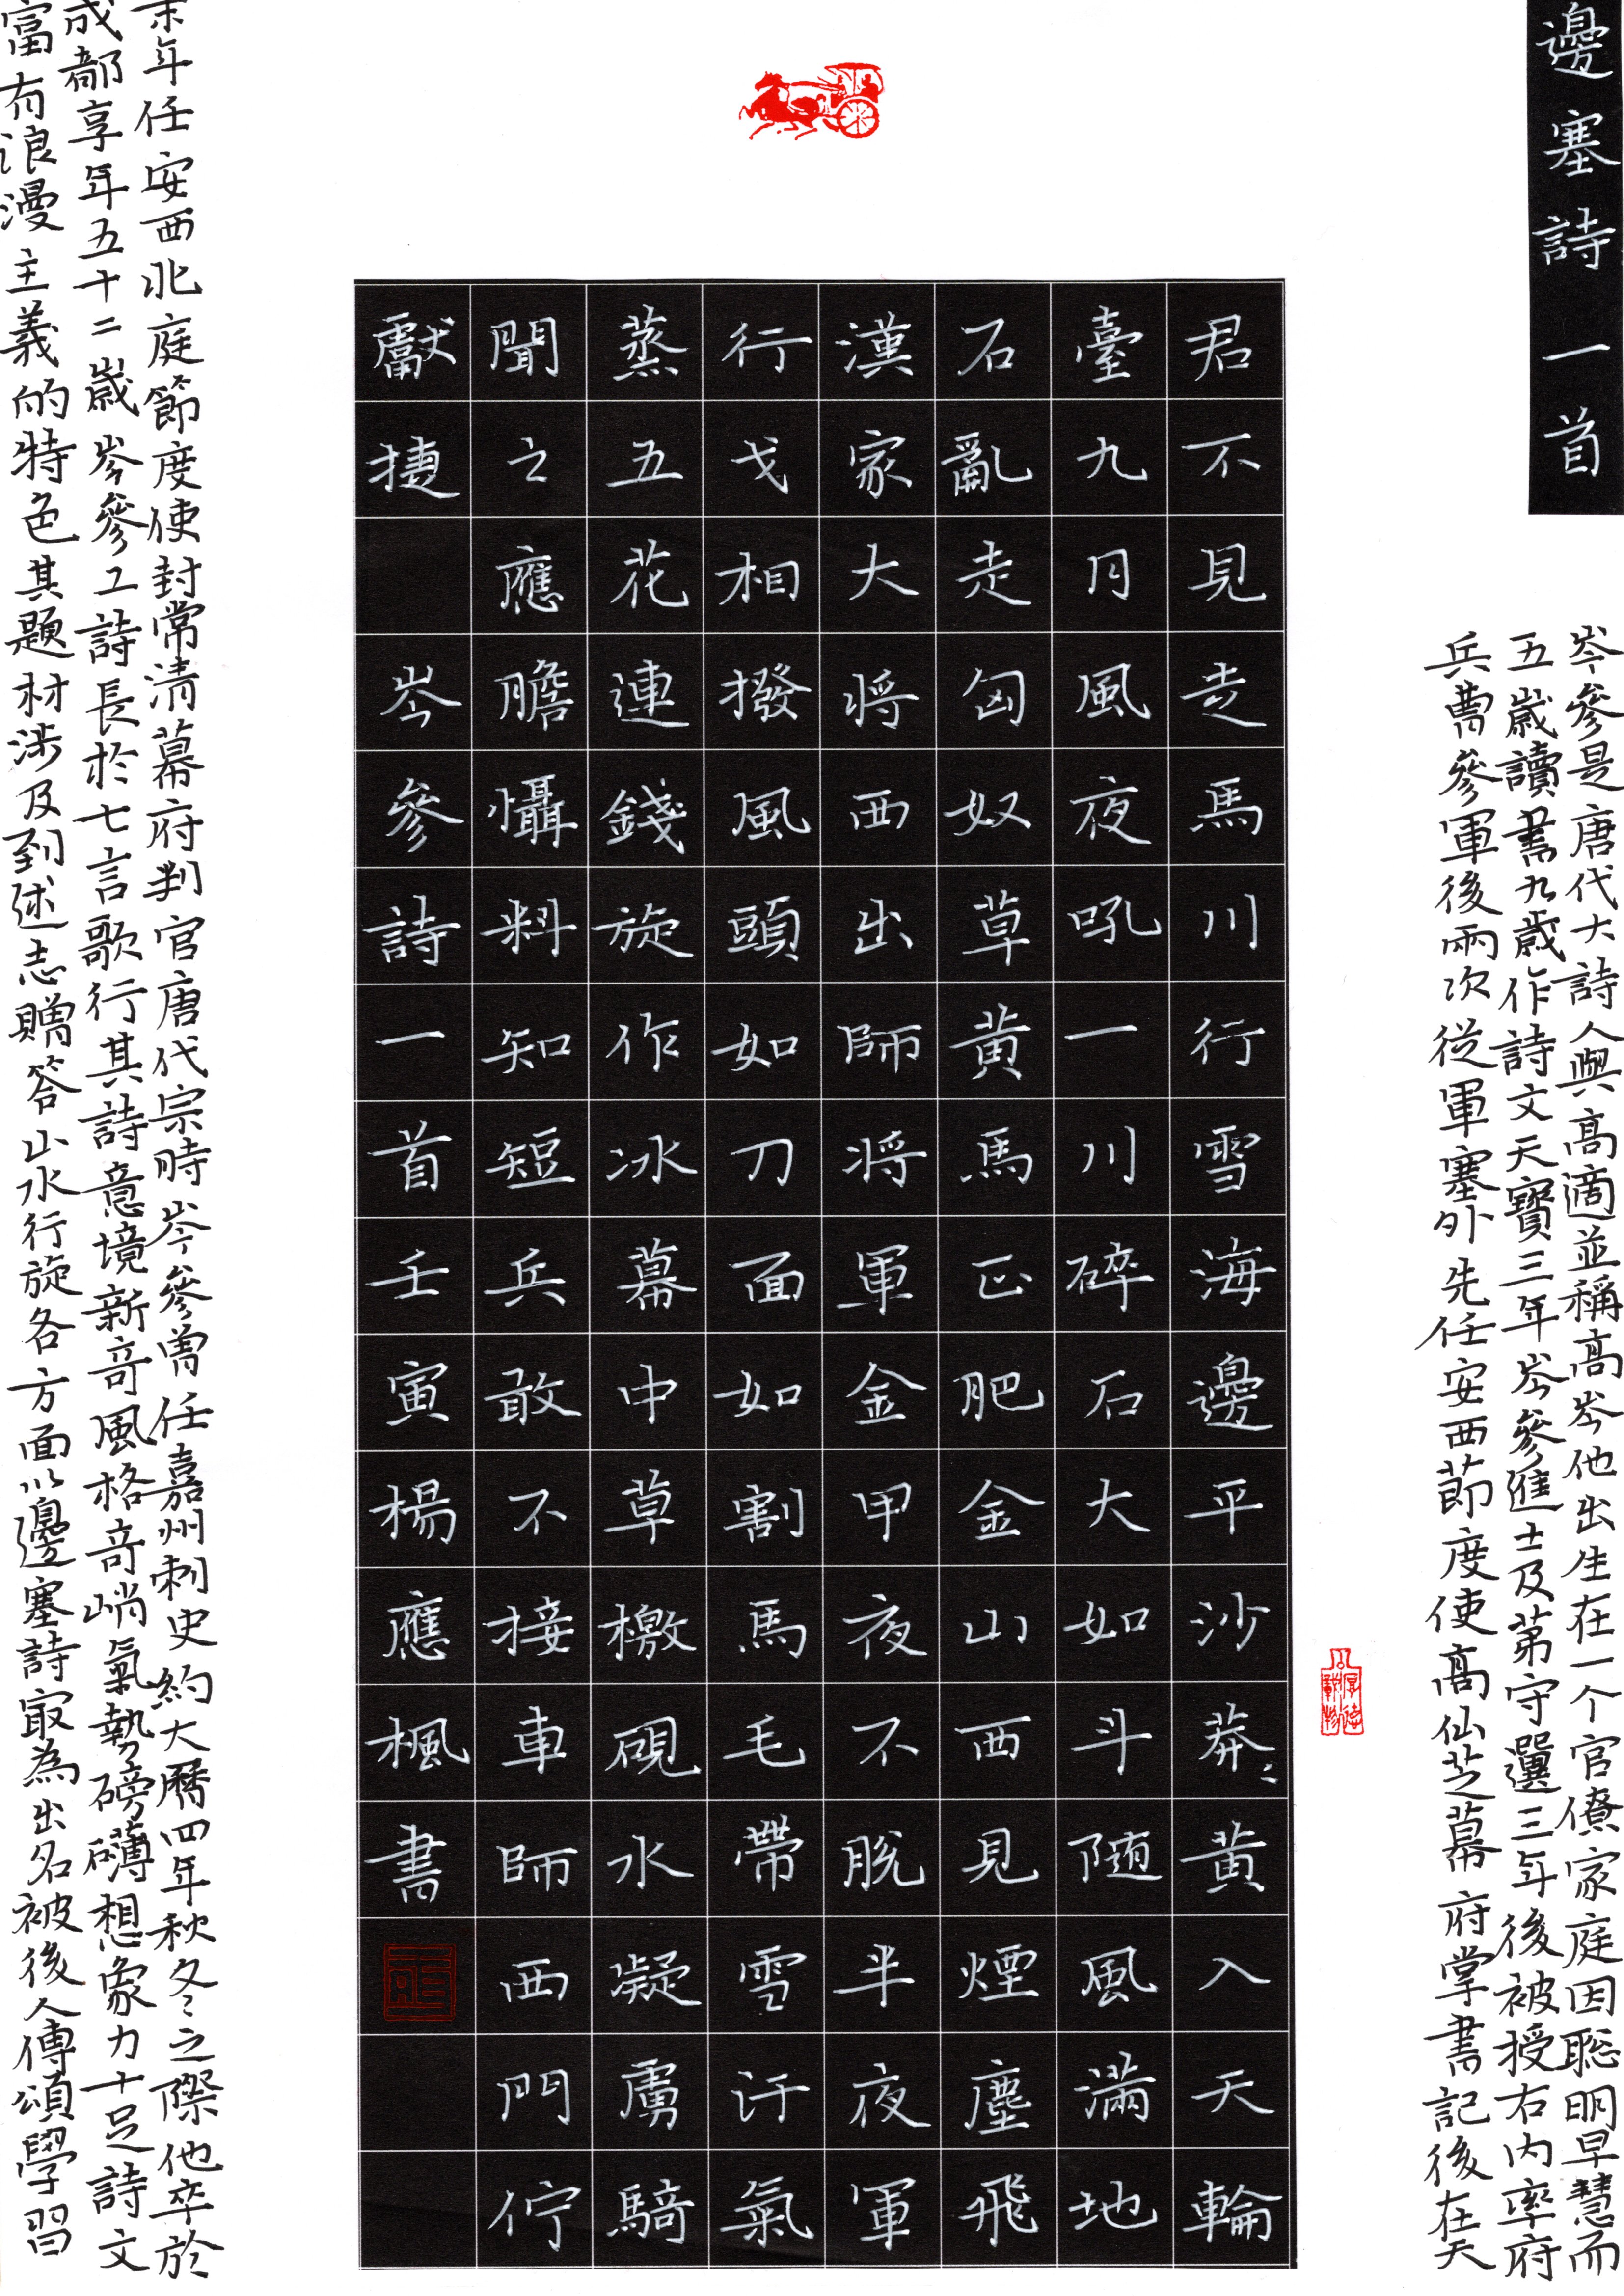 邊塞詩一首
岑參是唐代大詩人與高適並稱高岑他出生在一个官僚家庭因聡明早慧而
五歲讀書九歲作詩文天寶三年岑參進士及第守選三年後被授右内率府
兵曹參軍後兩次從軍塞外先任安西節度使高仙芝幕府掌書記後在天
君不見走馬川行雪海邊平沙莽〻黄入天輪
臺九月風夜吼一川碎石大如斗随風滿地
石亂走匈奴草黄馬正肥金山西見煙塵飛
漢家大将西出師将軍金甲夜不脱半夜軍
行戈相撥風頭如刀面如割馬毛帶雪汗氣
蒸五花連錢旋作冰幕中草檄硯水凝虜騎
聞之應膽懾料知短兵敢不接車師西門佇
獻捷 岑參詩一首壬寅楊應楓書
末年任安西北庭節度使封常清幕府判官唐代宗時岑參曾任嘉州刺史約大曆四年秋冬之際他卒於
成都享年五十二歲岑參工詩長於七言歌行其詩意境新奇風格奇峭氣勢磅礴想象力十足詩文
富有浪漫主義的特色其題材涉及到述志贈答山水行旋各方面以邊塞詩最為出名被後人傳頌學習